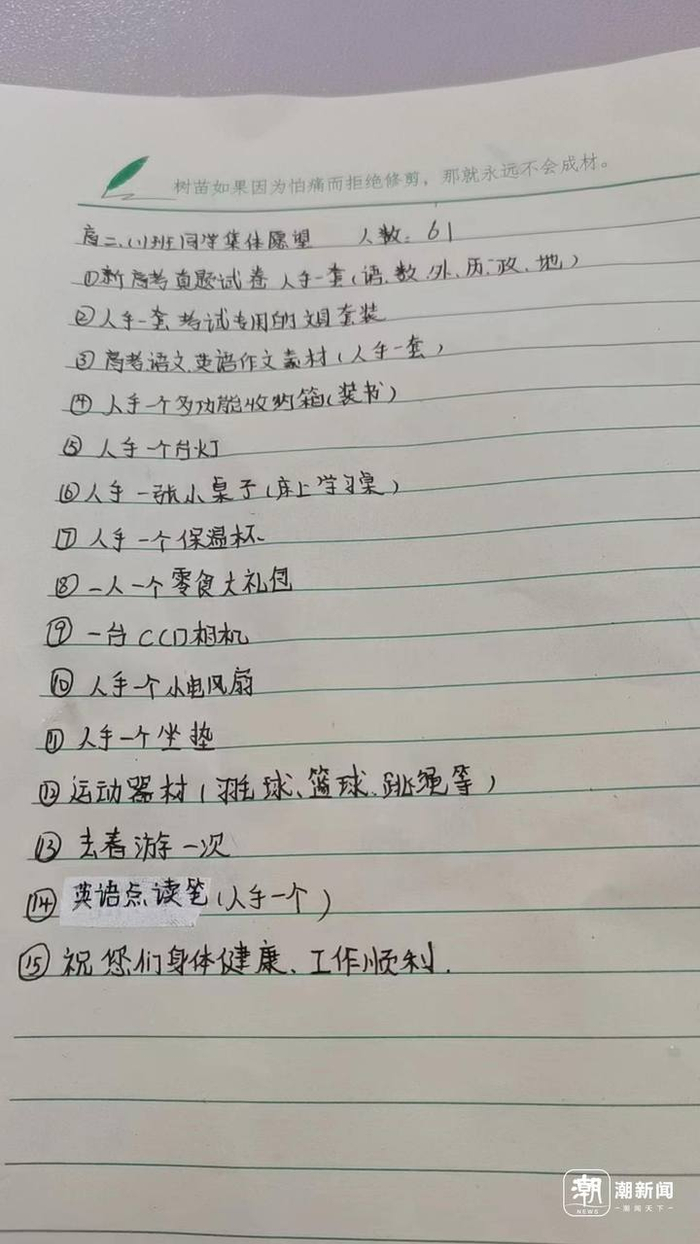 树苗如果因为怕痛而拒绝修剪，那就永远不会成材。
高二.(1)班同学集体愿望 人数: 61
①新高考真题试卷 人手一套(语、数、外、历、政、地)
②人手一套考试专用的文具套装
③高考语文.英语作文素材(人手一套)
④人手一个多功能收纳箱(装书)
⑤人手一个台灯
⑥人手一张小桌子(床上学习桌)
⑦人手一个保温杯.
⑧一人一个零食大礼包
⑨一台CCD相机
⑩人手一个小电风扇
⑪人手一个坐垫
⑫运动器材(羽毛球、篮球.跳绳等)
⑬去春游一次
⑭英语点读笔(人手一个)
⑮祝您们身体健康、工作顺利.
潮
NEWS
潮新闻
潮闻天下